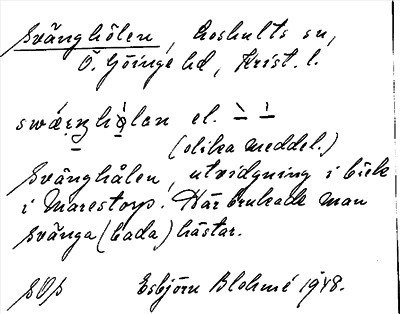 Svänghölen, Loshults sn,
Ö. Göinge hd, Krist. l.
swæŋhölan el.
(olika meddel.)
Svänghålen, utvidgning i bäck
i Marestorp. Här brukade man
svänga (bada) hästar.
SOS Esbjörn Blohmé 1948.